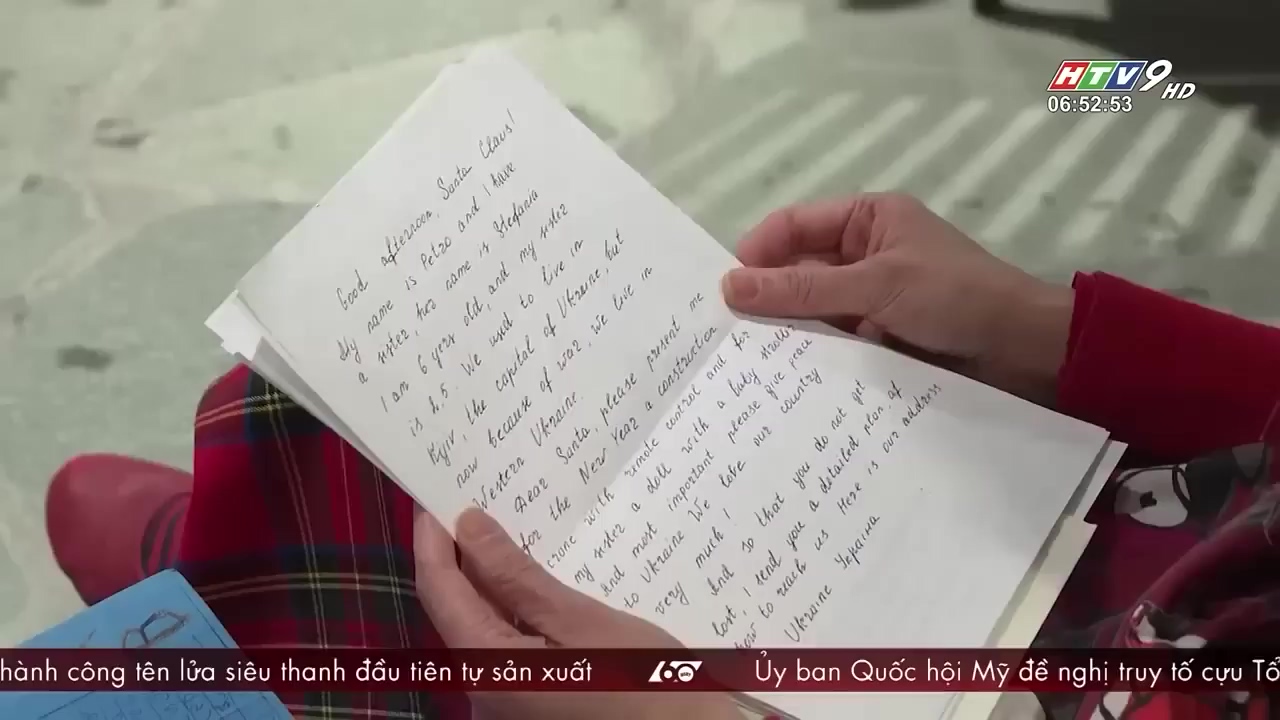 HTV9 HD
06:52:53
Good afternoon, Santa Claus!
My name is Petro and I have
a sister, her name is Stefania
I am 6 yers old, and my sister
is 2,5. We used to live in
Kyiv, the capital of Ukraine, but
now because of war, we live in
Western Ukraine.
Dear Santa, please present me
for the New Year a construction
crane with remote control and for
my sister a doll with a baby stroller
And most important please give peace
to Ukraine! We love our country
very much!
And so that you do not get
lost, I send you a detailed plan of
how to reach us Here is our address
Ukraine Україна
hành công tên lửa siêu thanh đầu tiên tự sản xuất
60 giây
Ủy ban Quốc hội Mỹ đề nghị truy tố cựu Tổ